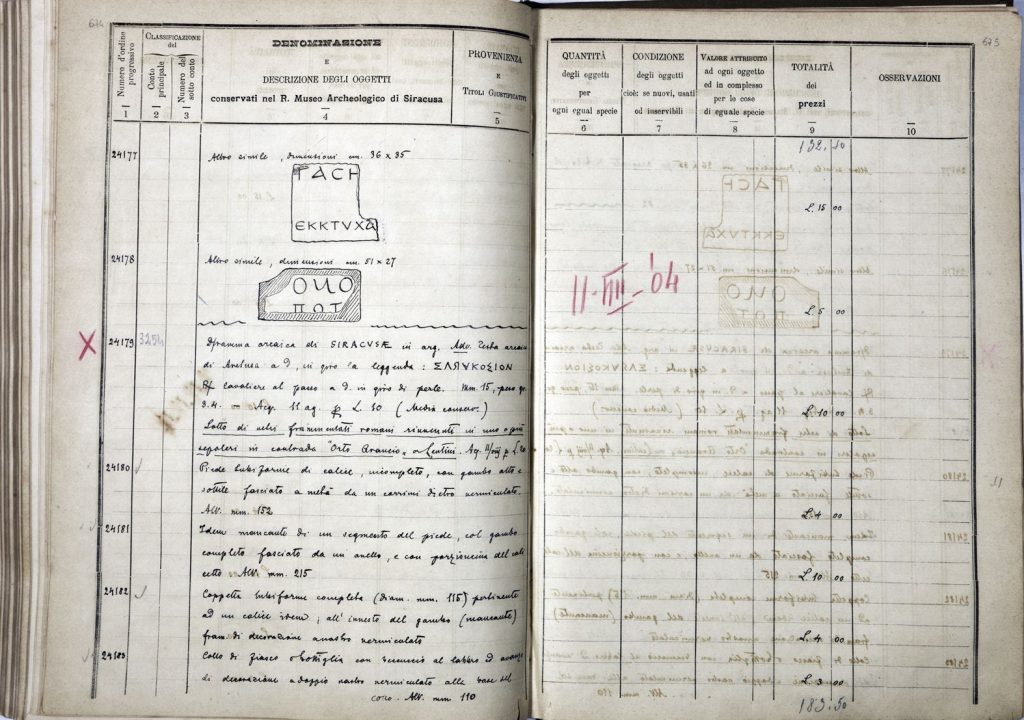 674
Numero d'ordine progressivo
CLASSIFICAZIONE del
Conto principale
Numero del sotto conto
DENOMINAZIONE
E
DESCRIZIONE DEGLI OGGETTI
conservati nel R. Museo Archeologico di Siracusa
PROVENIENZA
E
TITOLI GIUSTIFICATIVI
1 2 3 4 5
24177 Altro simile, dimensioni cm. 36 x 35
ΓΑCΗ
ЄΚΚΤVΧΑ
24178 Altro simile, dimensioni cm. 51 x 27
ΟΜΟ
ΠΟΤ
X 24179 Dramma arcaica di SIRACUSÆ in arg. Adv. Testa arcaica
di Aretusa a d, in giro la leggenda:
cavaliere al passo a d. in giro di perle. Mm. 15, peso gr.
3.4. = Acq. 11 ag. p L. 10 (Media conserv.)
Lotto di vetri frammentati romani rinvenuti in uno o più
sepolcri in contrada "Orto Arancio" a Lentini. Acq.
24180 Piede tubiforme di calice, incompleto, con gambo alto e
sottile fasciato a metà da un di vetro vermiculato.
Alt. mm. 152
24181 Idem mancante di un segmento del piede, col gambo
completo fasciato da un anello, e con porzioncina del cali
cetto Alt. mm. 215
24182 Coppetta tubiforme completa (diam. mm. 115) pertinente
ad un calice idem; all'innesto del gambo (mancante)
fram. di decorazione a nastro vermiculato
24183 Collo di fiasco o bottiglia con al labbro ed avanzi
di decorazione a doppio nastro vermiculato alla base del
collo. Alt. mm. 110
675
QUANTITÀ
degli oggetti
per
ogni egual specie
CONDIZIONE
degli oggetti
cioè: se nuovi, usati
od inservibili
VALORE ATTRIBUITO
ad ogni oggetto
ed in complesso
per le cose
di eguale specie
TOTALITÀ
dei
prezzi
OSSERVAZIONI
6 7 8 9 10
132.50
L. 15 00
11-VIII-'04
L. 5 00
L. 10 00
L. 4 00
L. 10 00
L. 4 00
L. 3 00
183.50